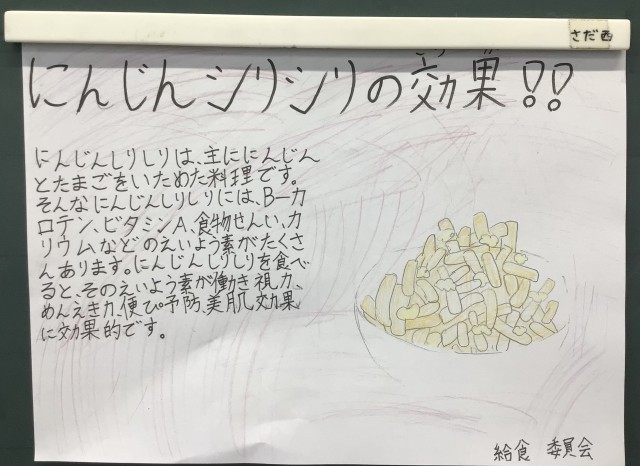 さだ西
こう か
にんじんシリシリの効果!!
にんじんしりしりは、主ににんじん
とたまごをいためた料理です。
そんなにんじんしりしりには、B-カ
ロテン、ビタミンA、食物せんい、カ
リウムなどのえいよう素がたくさ
んあります。にんじんしりしりを食べ
ると、そのえいよう素が働き視力、
めんえき力、便ぴ予防、美肌効果
に効果的です。
給食 委員会